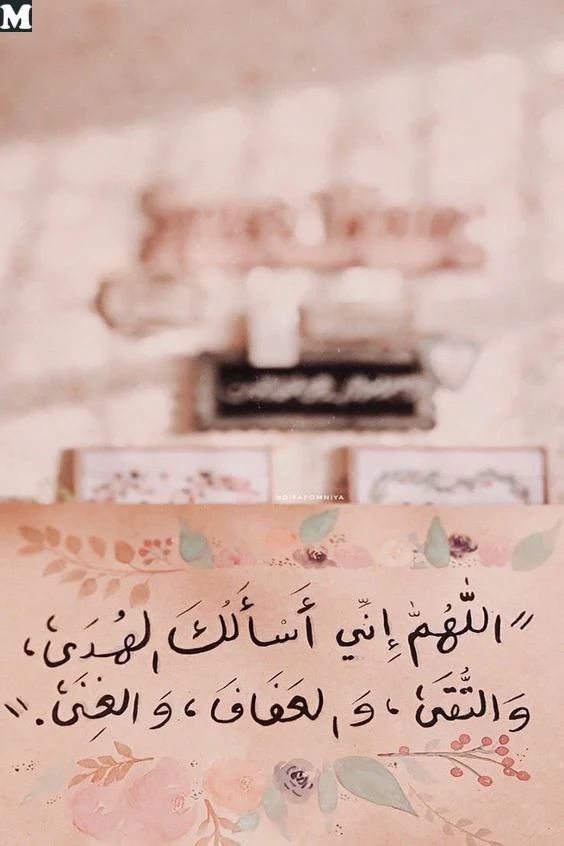 M
@DIFAFOMNIYA
"اللَّهُمَّ إِنِّي أَسْأَلُكَ الهُدَىٰ،
وَالتُّقَىٰ، وَالعَفَافَ، وَالغِنَىٰ."